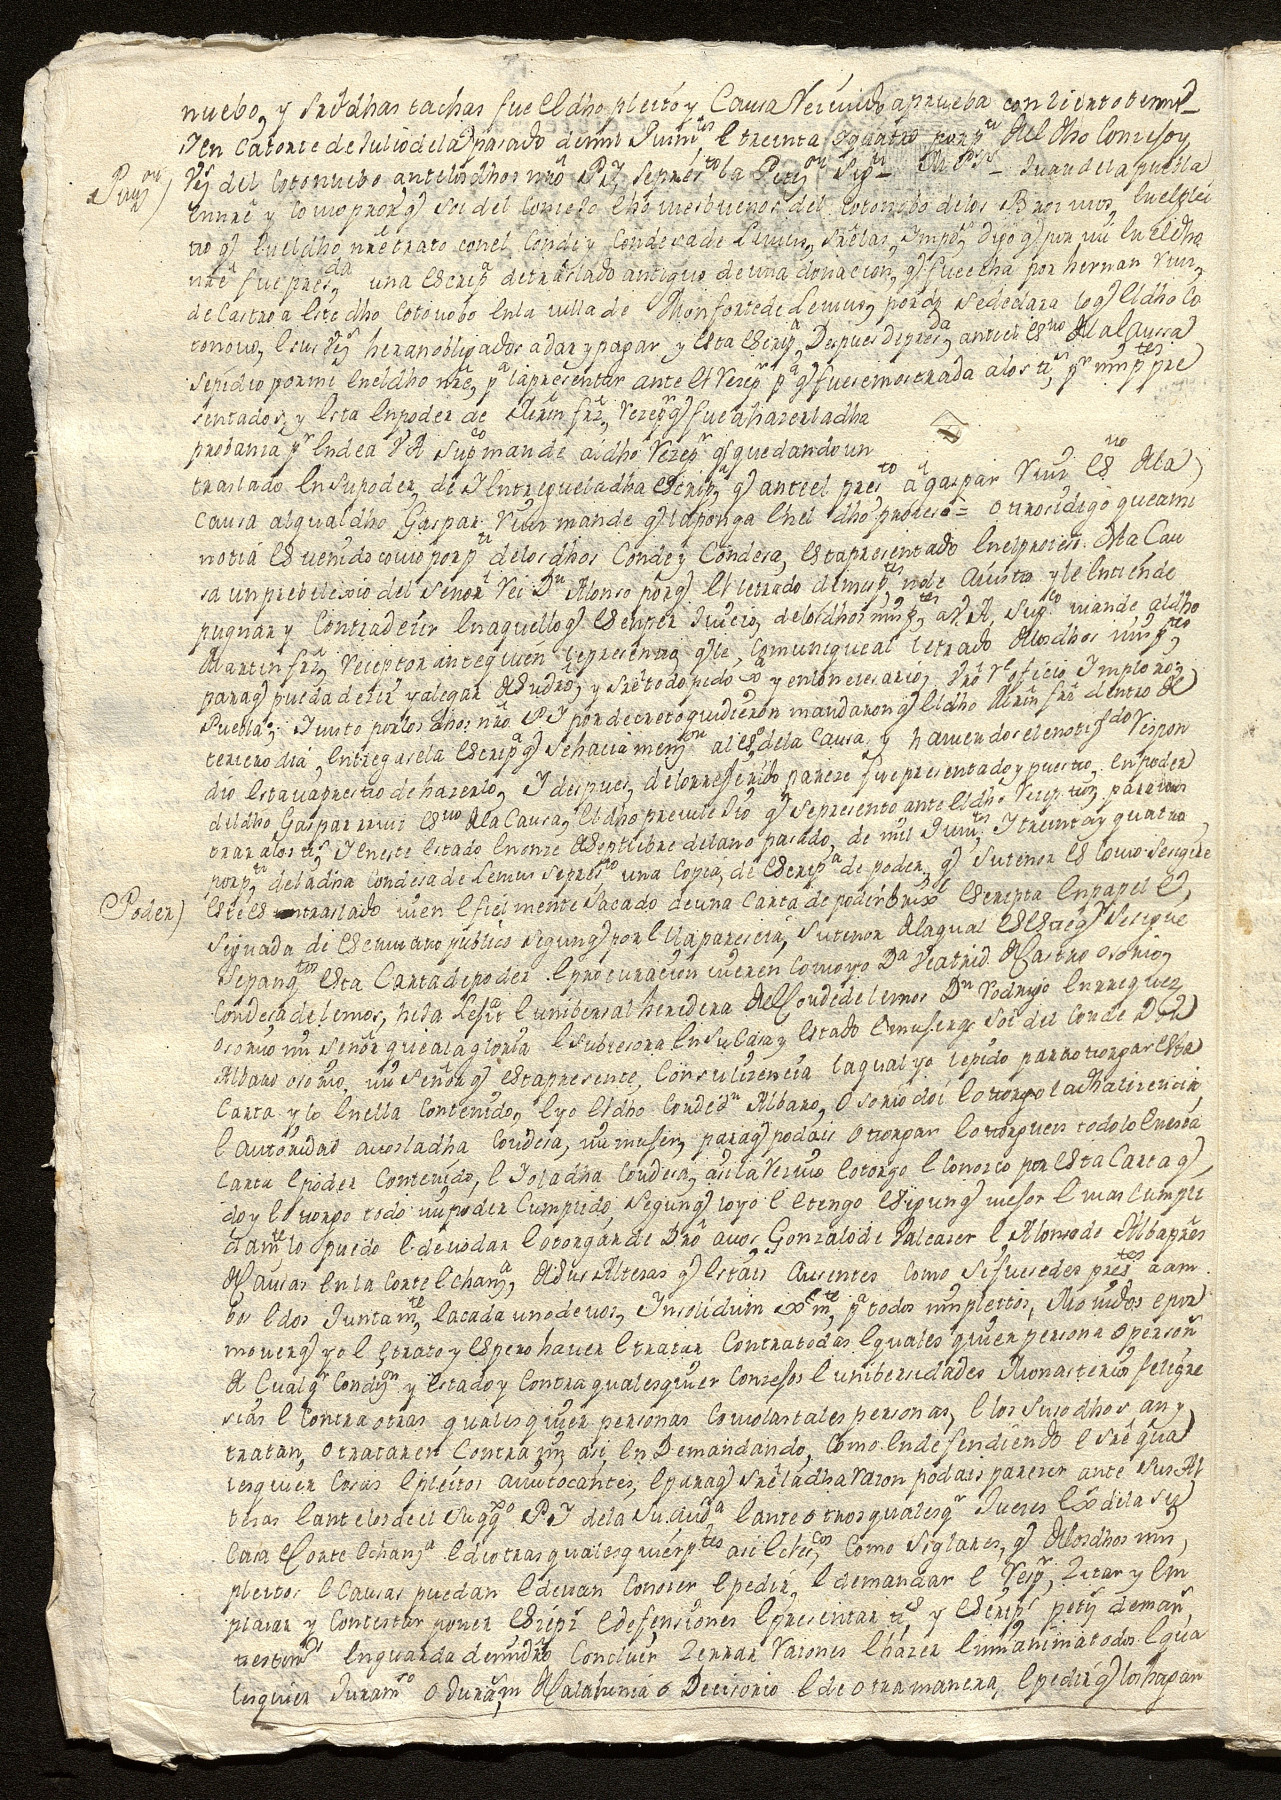 nuebo, y sre dhas tachas fue el dho pleito y Causa Recivido aprueba con ziento termo
Y en Catorze de Julio del aº pasado de mil quinˢ e treinta y quatro por pᵗᵉ del dho Conzejo y
Petiᵒⁿ) Vᵒˢ del Coto nuebo ante los dhos nrō P. Y. se presᵗᵒ la Petiᵒⁿ sigᵗᵉ M. P. S. Juan de la puebla
en nrē y como procᵒʳ q̄ soi del Conzejo e homes buenos del Cotonobo de los en el plei
to q̄ en el dho nrē trato con el Conde y Condesa de Lemus, sre las Impᵒˢ, Digo q̄ por mi en el dho
nrē fue presᵈᵃ una escripᵃ de traslado antiguo de una donacion, q̄ fue echa por hernan Ruiz
de Castro a este dho Cotonobo en la villa de Monforte de Lemus, por dᵉ se declara lo q̄ el dho Co
tonovo, e sus vᵒˢ heran obligados a dar y pagar y esta escripᵃ, Despues de presᵈᵃ ante el esᵛⁿᵒ de la Caussa
se pidio por mi en el dho nrē, pᵃ la presentar ante el Rezepʳ pᵃ q̄ fuese mostrada a los tᵒˢ, pʳ mis pᵗᵉˢ pre
sentados, y esta en poder de Mrin frz, Rezepʳ q̄ fue a hazer la dha
probanza pʳ ende a V. A. supᶜᵒ mande al dho Rezepʳ q̄ quedando un
traslado en su poder, de y entregue la dha escripᵃ q̄ ante el presᵗᵒ a gaspar Ruiz esᵛⁿᵒ de la
Causa al qual dho Gaspar Ruiz mande q̄ la ponga en el dho proceso = otrosi digo que a mi
notiᵃ es venido como por pᵗᵉ de los dhos Conde y Condesa, esta presentado en el proceso de la Cau
sa un prebilexio del Señor Rei Dⁿ Alonso por q̄ el letrado de mis pᵗᵉˢ no le a visto y le entiende
pugnar y Contradecir en aquello q̄ es en perjuicio, de los dhos mis pᵗᵉˢ, a V. A. supᶜᵒ mande al dho
Martin frz, Rezeptor ante quien se presento, q̄ le Comunique al letrado de los dhos mis pᵗᵉˢ
para q̄ pueda decir y alegar de su drō, y sre todo pido xᵃ y en lo necesario, Vrō Rˡ oficio Imploro,
Puebla; Y visto por los dhos nrō P. Y. por decreto que dieron mandaron q̄ el dho Mrin frz dentro de
tercero dia, entregase la escripᵃ q̄ se hacia menᶜⁱᵒⁿ al esᵒ de la Causa y haviendosele notifᵈᵒ Respon
dio estava presto de hazerlo, Y despues, de lo rreferido parece fue presentado y puesto en poder
del dho Gaspar rruiz esᵛⁿᵒ de la Causa, el dho previlexio q̄ se presento ante el dho Rezepᵗᵒʳ, para mos
trar a los tᵒˢ, Y en este estado en onze de Septiebre del año pasado, de mil quinˢ, Y treinta y quatro
por pᵗᵉ de la dha Condesa de Lemus se presᵗᵒ una Copia, de escripᵃ de poder, q̄ su tenor es como se sigue
Poder) Este es un traslado vien e fiel mente sacado de una Carta de poder escripta en papel e,
signada de escrivano publico segun q̄ por ella parescia, su tenor de la qual es este q̄ se sigue
Sepan qᵗᵒˢ esta Carta de poder e procuracion vieren como yo Dᵃ Beatriz de Castro osorio,
Condesa de lemos, hija lexᵐᵃ e unibersal heredera del Conde de lemos Dⁿ Rodrigo enrriquez
osorio mi señor que a la gloria e subcesora en su Casa y estado e muger q̄ soi del Conde Dⁿ
Albaro osorio, mi señor q̄ esta presente, Con su licencia la qual yo le pido para otorgar esta
Carta y lo en ella Contenido, e yo el dho Conde Dⁿ Albaro, osorio doi e otorgo la dha licencia,
e autoridad a vos la dha Condesa, mi muger, para q̄ podais otorgar e otorgueis todo lo en esta
Carta e poder Contenido, e Yo la dha Condesa, asi la Recivo e otorgo e Conosco por esta Carta q̄
doy e otorgo todo mi poder Cumplido, segun q̄ lo yo e tengo e segun q̄ mejor e mas Cumpli
damᵗᵉ lo puedo e devo dar e otorgar de Drō a vos Gonzalo de Valcarcel e Alonso de Alba procᵉˢ
de Causas en la Corte e chanᵃ, de sus Altezas q̄ estais ausentes como si fuesedes presᵗᵉˢ a am
bos e dos Juntamᵗᵉ, e a cada uno de vos, Insolidum xᵉ mᵗᵉ, pᵃ todos mis pleitos, Movidos e por
mover q̄ yo e e trato y espero haver e tratar Contra todas e quales quier persona o person
de Cualqʳ Condⁿ y estado y contra quales quier Conzejos e unibersidades Monasterios feligre
sias e Contra otras quales quier personas Como las tales personas, e los susodhos an y
tratan, o trataren Contra mi, asi en Demandando, como en defendiendo e sre qua
les quier Cosas e pleitos a mi tocantes, e para q̄ sre la dha razon podais parezer ante sus Al
tezas e ante los de el P. Y. de la su Audᵃ e ante otros quales qʳ Jueces de la su
Casa e Corte e chanᵃ e de otras quales quier pᵗᵉˢ asi eclesᶜᵒˢ como siglares, q̄ de los dhos mis,
pleitos e causas puedan e devan Conocer e pedir, e demandar e Respʳ, Zitar y en
plazar y Contestar poner escepˢ e defensiones e presentar tᵒˢ, y escripˢ petiˢ deman,
testimˢ en guarda de mi drō Concluir Zerrar Razones e hazer en mi anima todos e qua
les quier Juramᵗᵒ o Juramˢ de Calunia o Decisorio e de otra manera, e pedir q̄ los hagan